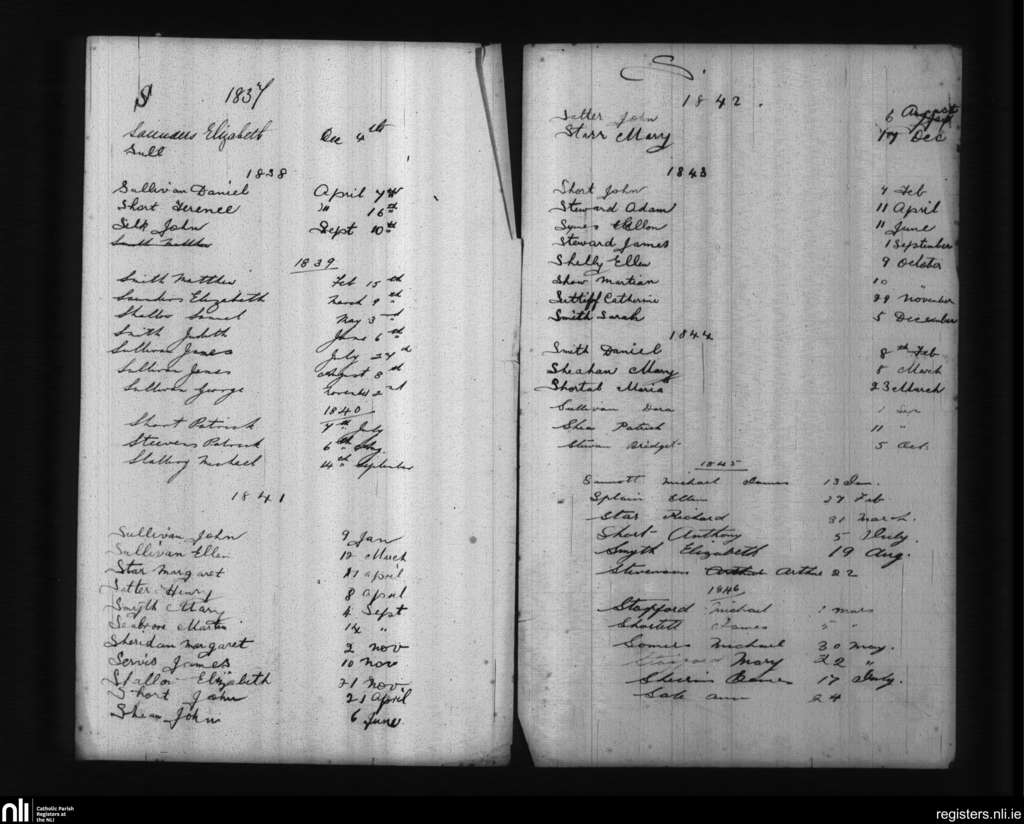 S 1837
Saunders Elizabeth Dec 4th
Sull
1838
Sullivan Daniel April 7th
Short Terence " 16th
Selk John Sept 10th
Smith Matthew
1839
Smith Matthew Feb 15th
Saunders Elizabeth March 9th
Shallow Samuel May 3rd
Smith Judith June 6th
Sullivan James July 24th
Sullivan James August 8th
Sullivan George November 2nd
1840
Short Patrick 7th July
Steevens Patrick 6th
Slattery Michael 14th September
1841
Sullivan John 9 Jan
Sullivan Ellen 12 March
Star Margaret 21 april
Satter Henry 8 April
Smyth Mary 4 Sept
Seabrove Martin 14 "
Sheridan Margaret 2 nov
Servis James 10 Nov
Shallow Elizabeth 21 Nov
Short John 21 April
Shean John 6 June
S.
1842.
Satter John 6 August
Starr Mary 17 Dec
1843
Short John 4 Feb
Steward Adam 11 April
Synes 11 June
Steward James 1 September
Shelly Ellen 9 October
Shaw Martian 10 "
Suttliff Catherine 29 November
Smith Sarah 5 December
1844
Smith Daniel 8th Feb
Sheahan Mary 8 March
Shortal Maria 23 March
Sullivan Dora 1
Shea Patrick 11 "
Bridget 5 Oct.
1845
Sinnott Michael James 13 Jan.
Splain Ellen 27 Feb
Star Richard 31 March.
Short Anthony 5 July.
Smyth Elizabeth 19 Aug.
Stevenson Arthur 22
1846
Stafford Michael 1 mars
Shortett James 5 "
Somers Michael 30 May.
Mary 22 "
Sherris James 17 July.
Sale ann 24
nli
Catholic Parish
Registers at
the NLI
registers.nli.ie